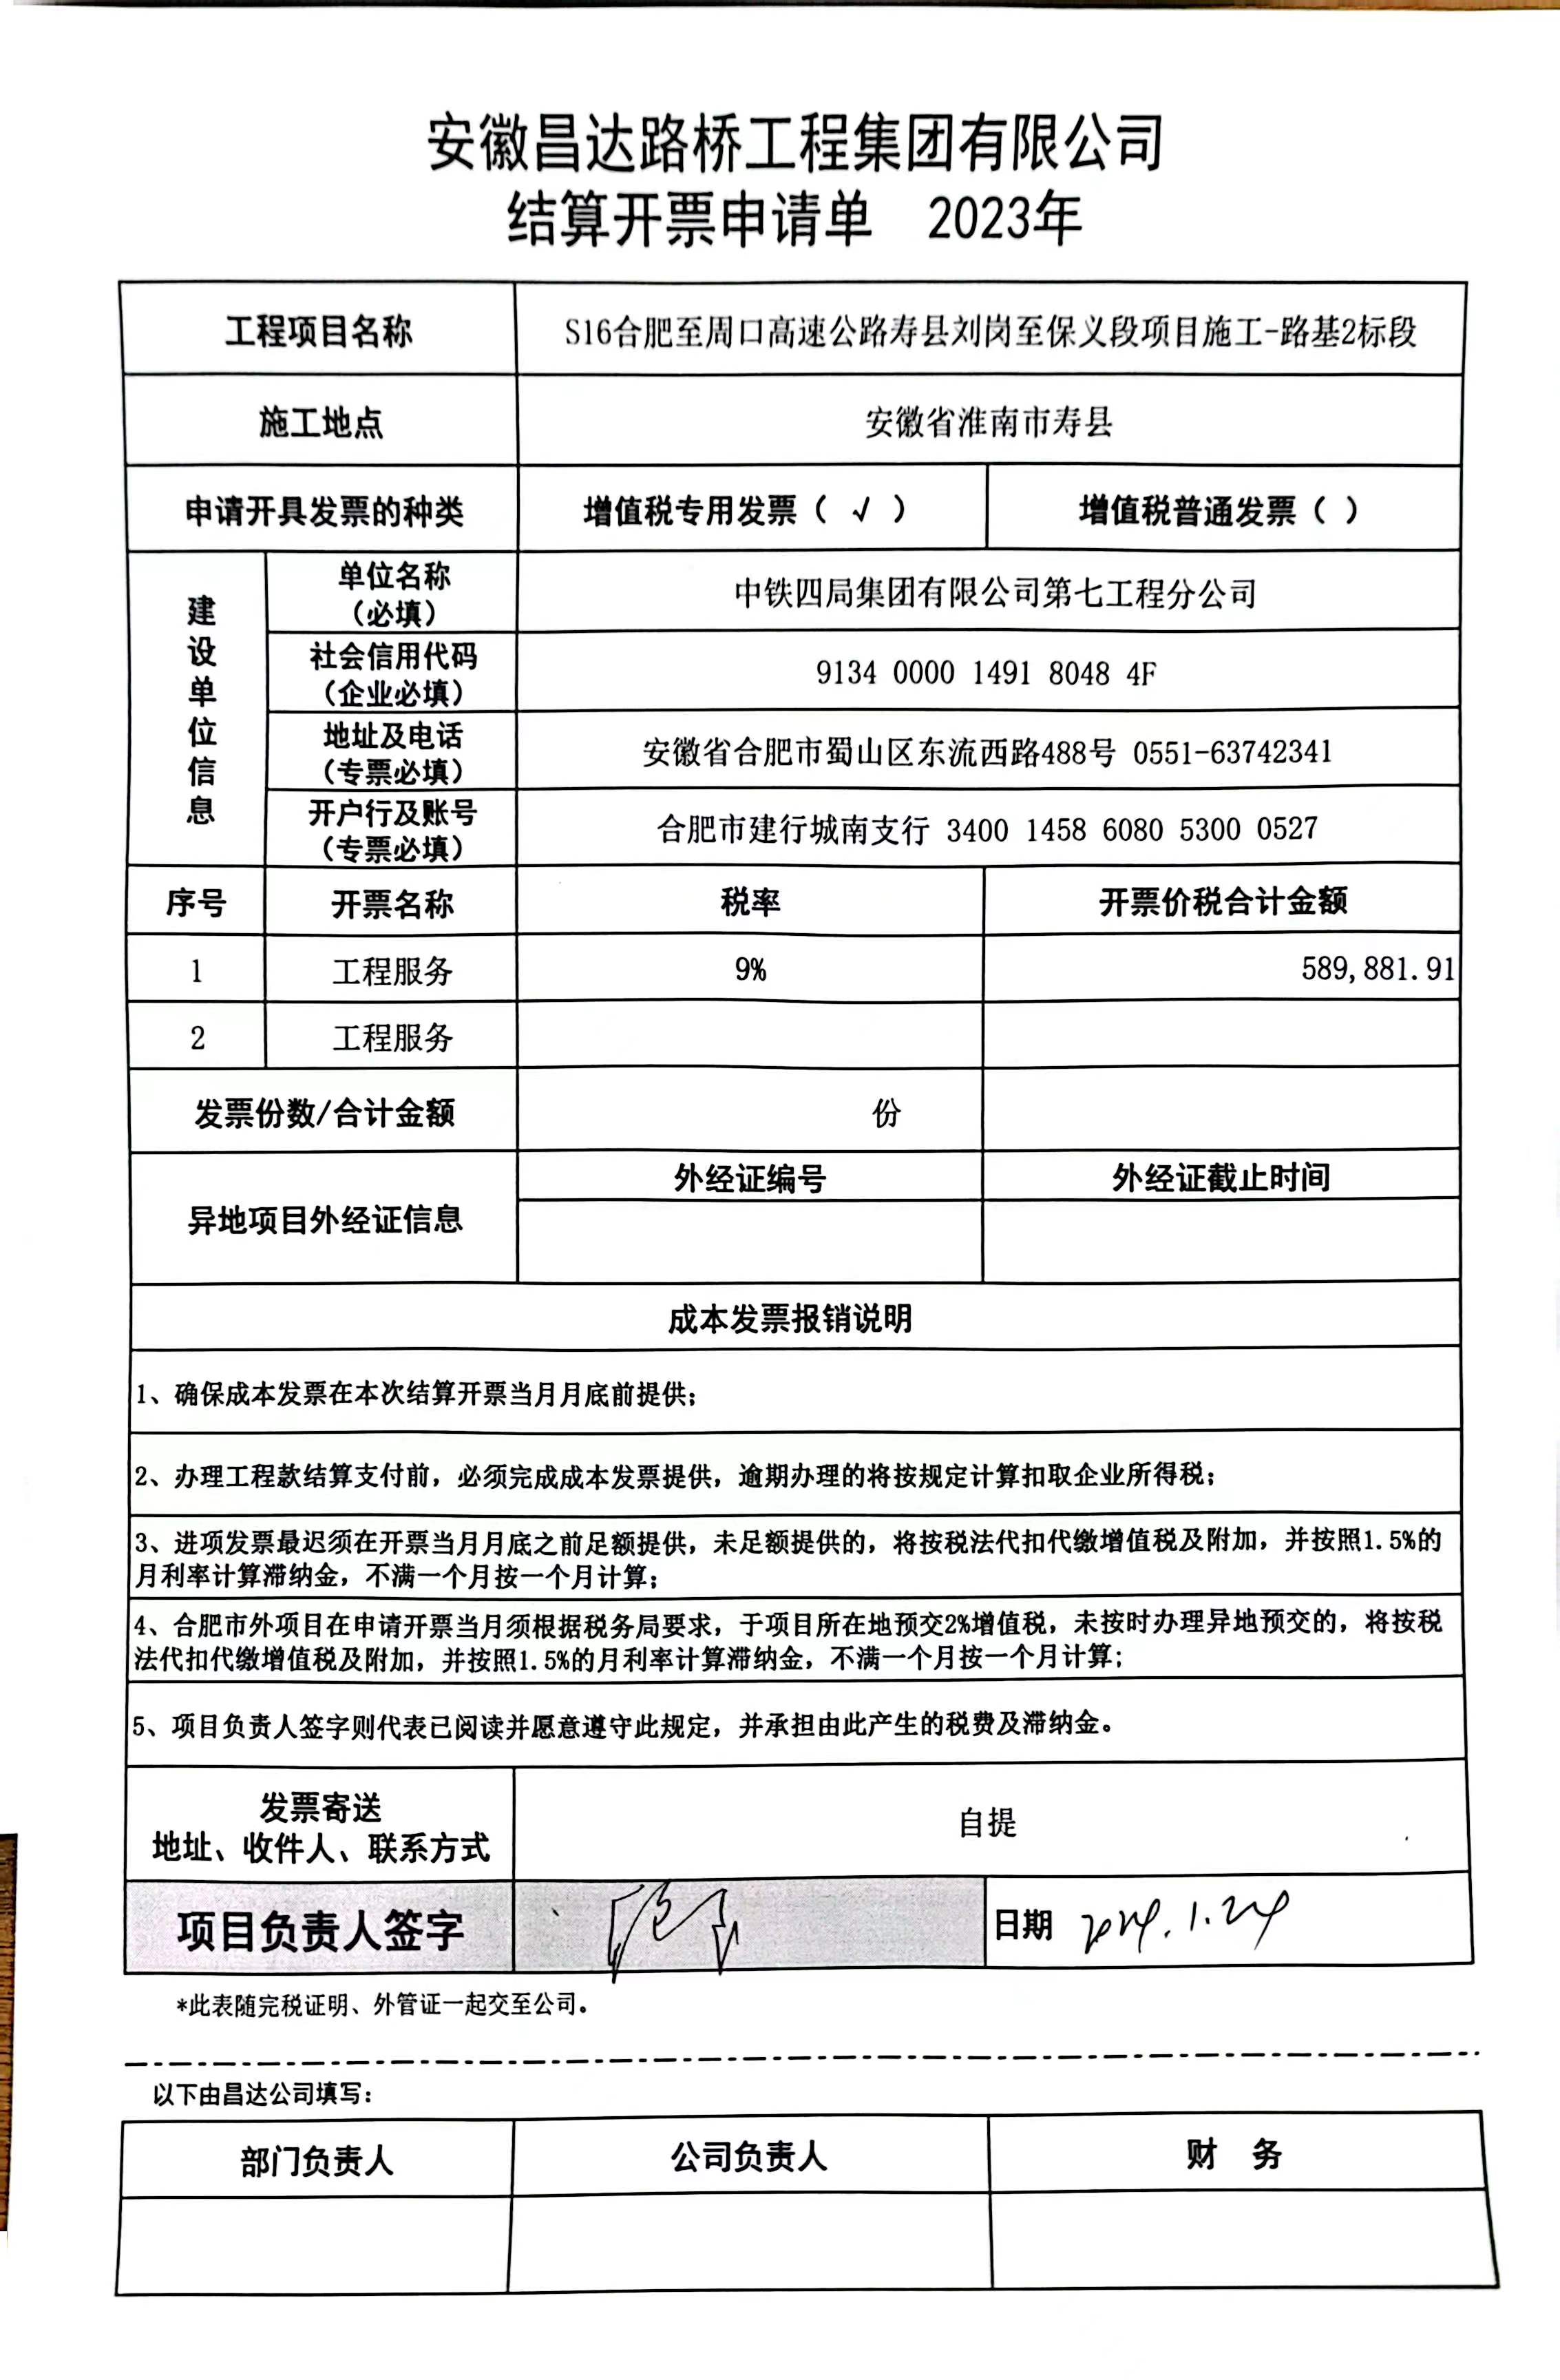 安徽昌达路桥工程集团有限公司
结算开票申请单 2023年
工程项目名称 S16合肥至周口高速公路寿县刘岗至保义段项目施工-路基2标段
施工地点 安徽省淮南市寿县
申请开具发票的种类 增值税专用发票（ √ ） 增值税普通发票（ ）
建设单位信息
单位名称
（必填）
中铁四局集团有限公司第七工程分公司
社会信用代码
（企业必填）
9134 0000 1491 8048 4F
地址及电话
（专票必填）
安徽省合肥市蜀山区东流西路488号 0551-63742341
开户行及账号
（专票必填）
合肥市建行城南支行 3400 1458 6080 5300 0527
序号 开票名称 税率 开票价税合计金额
1 工程服务 9% 589,881.91
2 工程服务
发票份数/合计金额 份
异地项目外经证信息
外经证编号 外经证截止时间
成本发票报销说明
1、确保成本发票在本次结算开票当月月底前提供；
2、办理工程款结算支付前，必须完成成本发票提供，逾期办理的将按规定计算扣取企业所得税；
3、进项发票最迟须在开票当月月底之前足额提供，未足额提供的，将按税法代扣代缴增值税及附加，并按照1.5%的
月利率计算滞纳金，不满一个月按一个月计算；
4、合肥市外项目在申请开票当月须根据税务局要求，于项目所在地预交2%增值税，未按时办理异地预交的，将按税
法代扣代缴增值税及附加，并按照1.5%的月利率计算滞纳金，不满一个月按一个月计算；
5、项目负责人签字则代表已阅读并愿意遵守此规定，并承担由此产生的税费及滞纳金。
发票寄送
地址、收件人、联系方式
自提
项目负责人签字 日期 2024.1.24
*此表随完税证明、外管证一起交至公司。
以下由昌达公司填写：
部门负责人 公司负责人 财 务